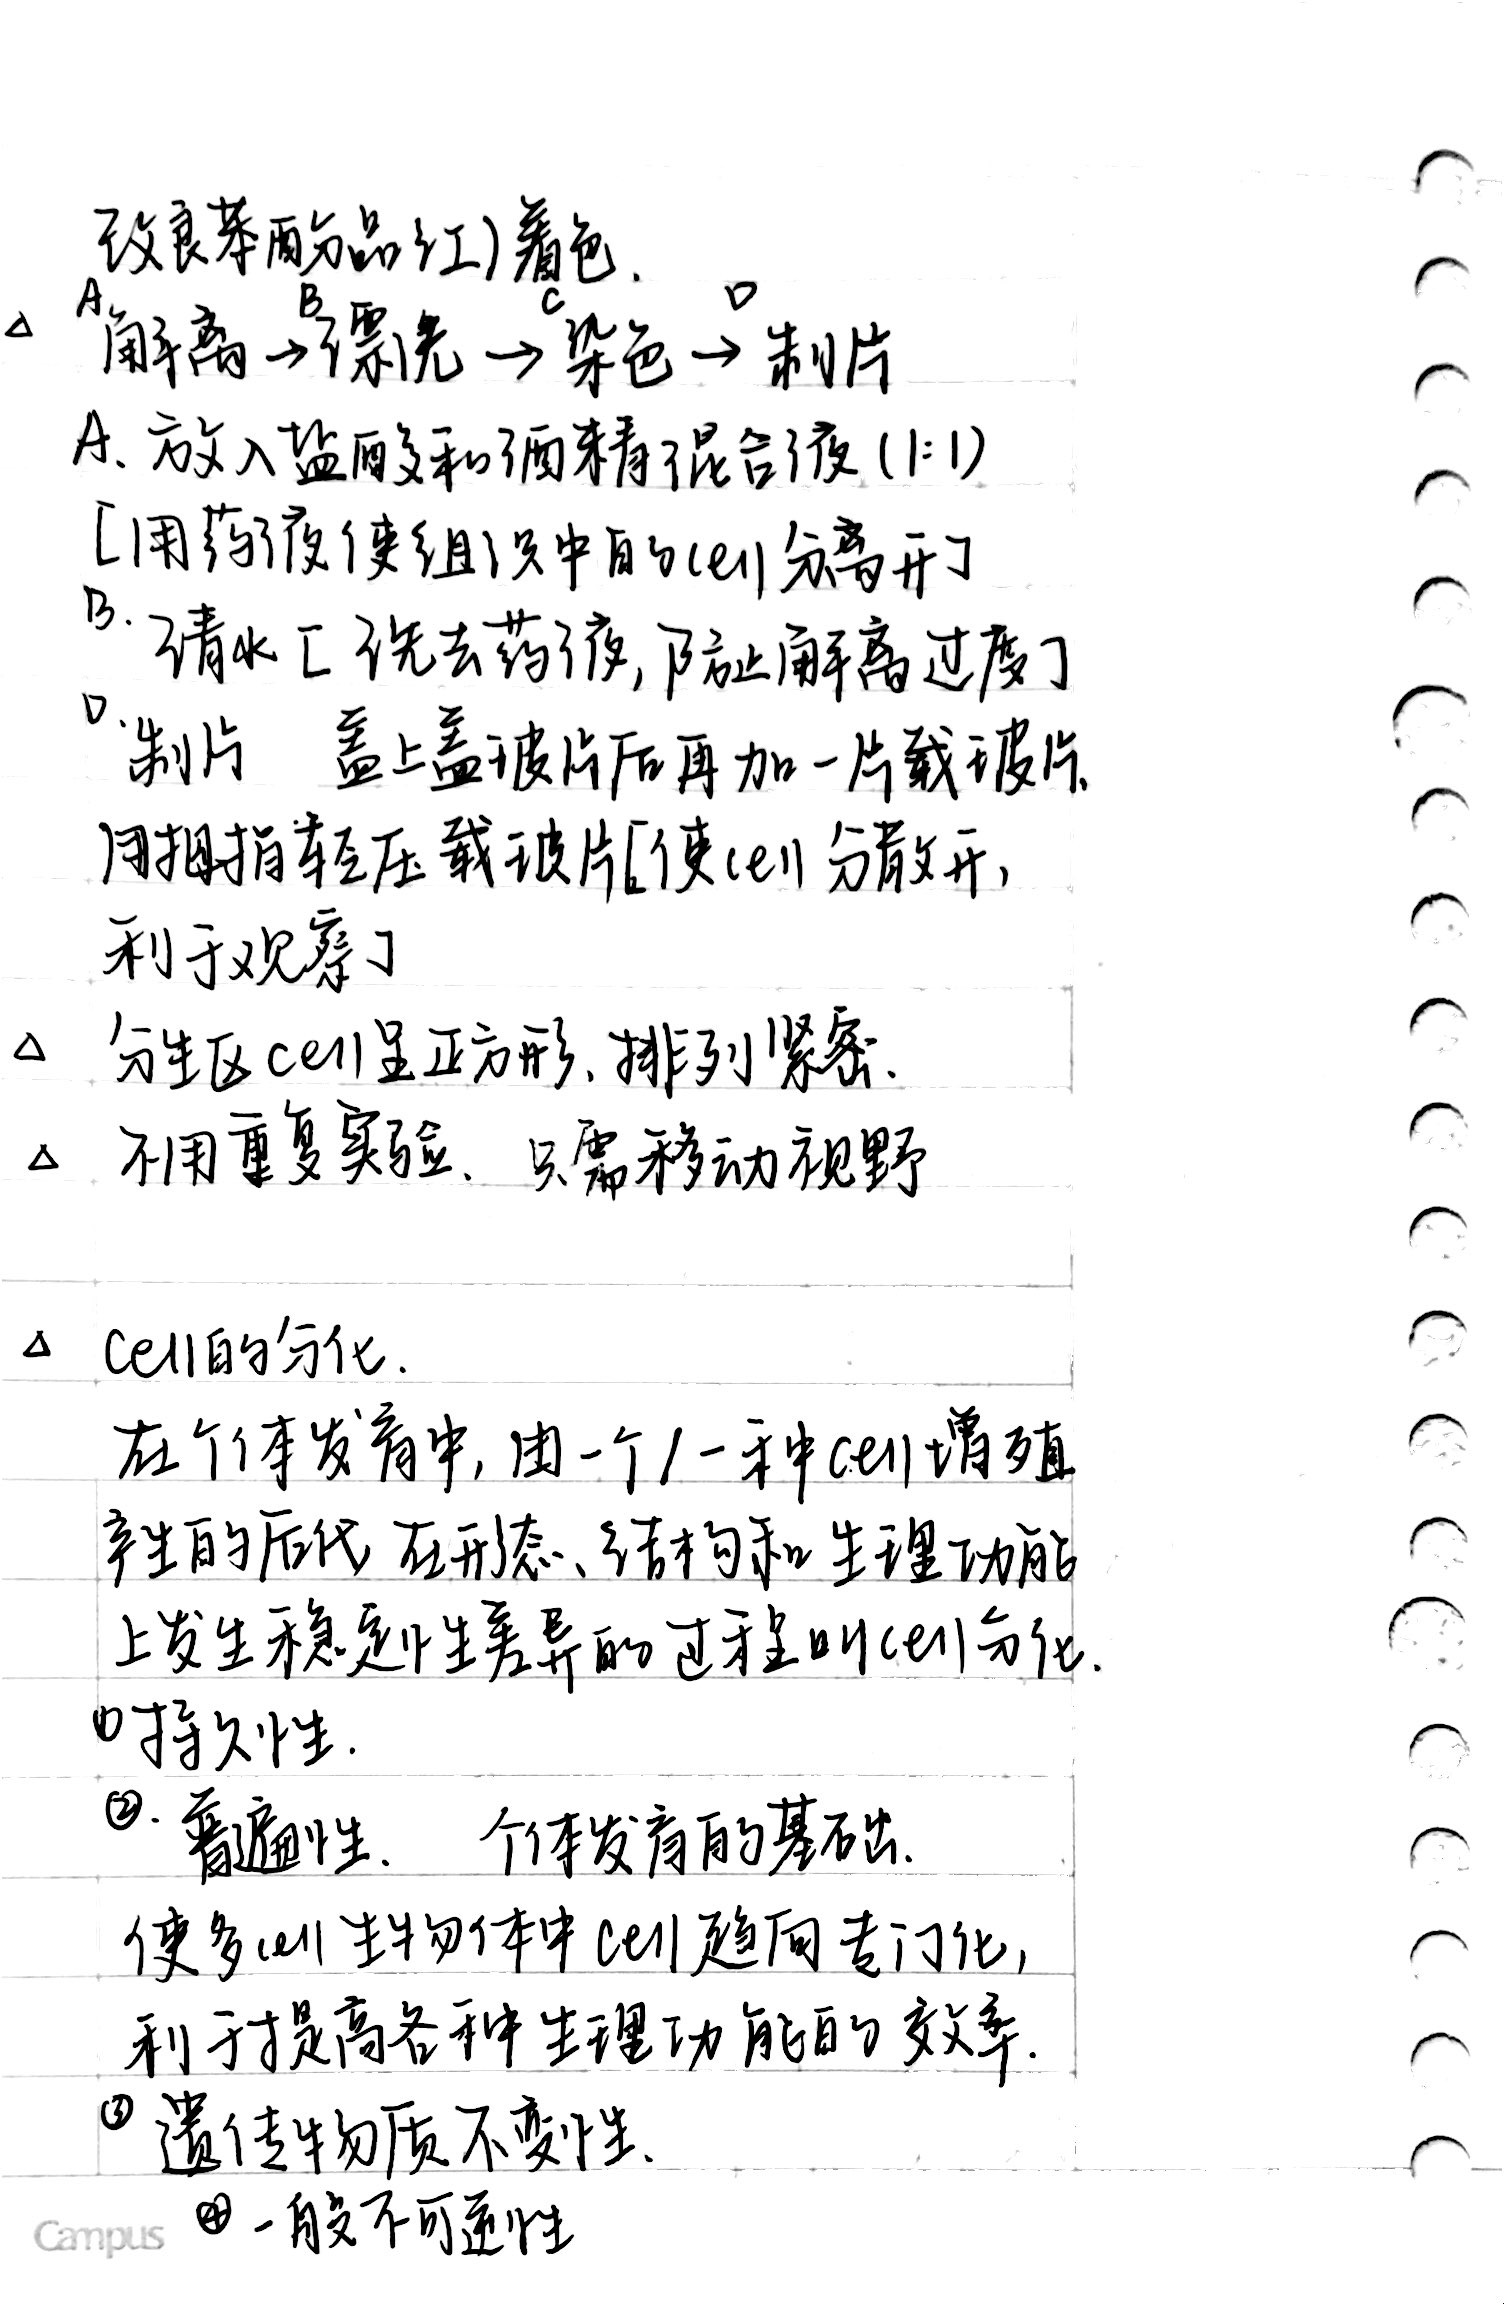 改良苯酚品红)着色.
△ A解离→B漂洗→C染色→D制片
A. 放入盐酸和酒精混合液(1:1)
[用药液使组织中的cell分离开]
B. 清水[洗去药液,防止解离过度]
D. 制片 盖上盖玻片后再加一片载玻片.
用拇指轻压载玻片[使cell分散开,
利于观察]
△ 分生区cell呈正方形、排列紧密.
△ 不用重复实验、只需移动视野
△ cell的分化.
在个体发育中,由一个/一种cell增殖
产生的后代在形态、结构和生理功能
上发生稳定性差异的过程叫cell分化.
①持久性.
②. 普遍性. 个体发育的基础.
使多cell生物体中cell趋向专门化,
利于提高各种生理功能的效率.
③遗传物质不变性.
④一般不可逆性
Campus